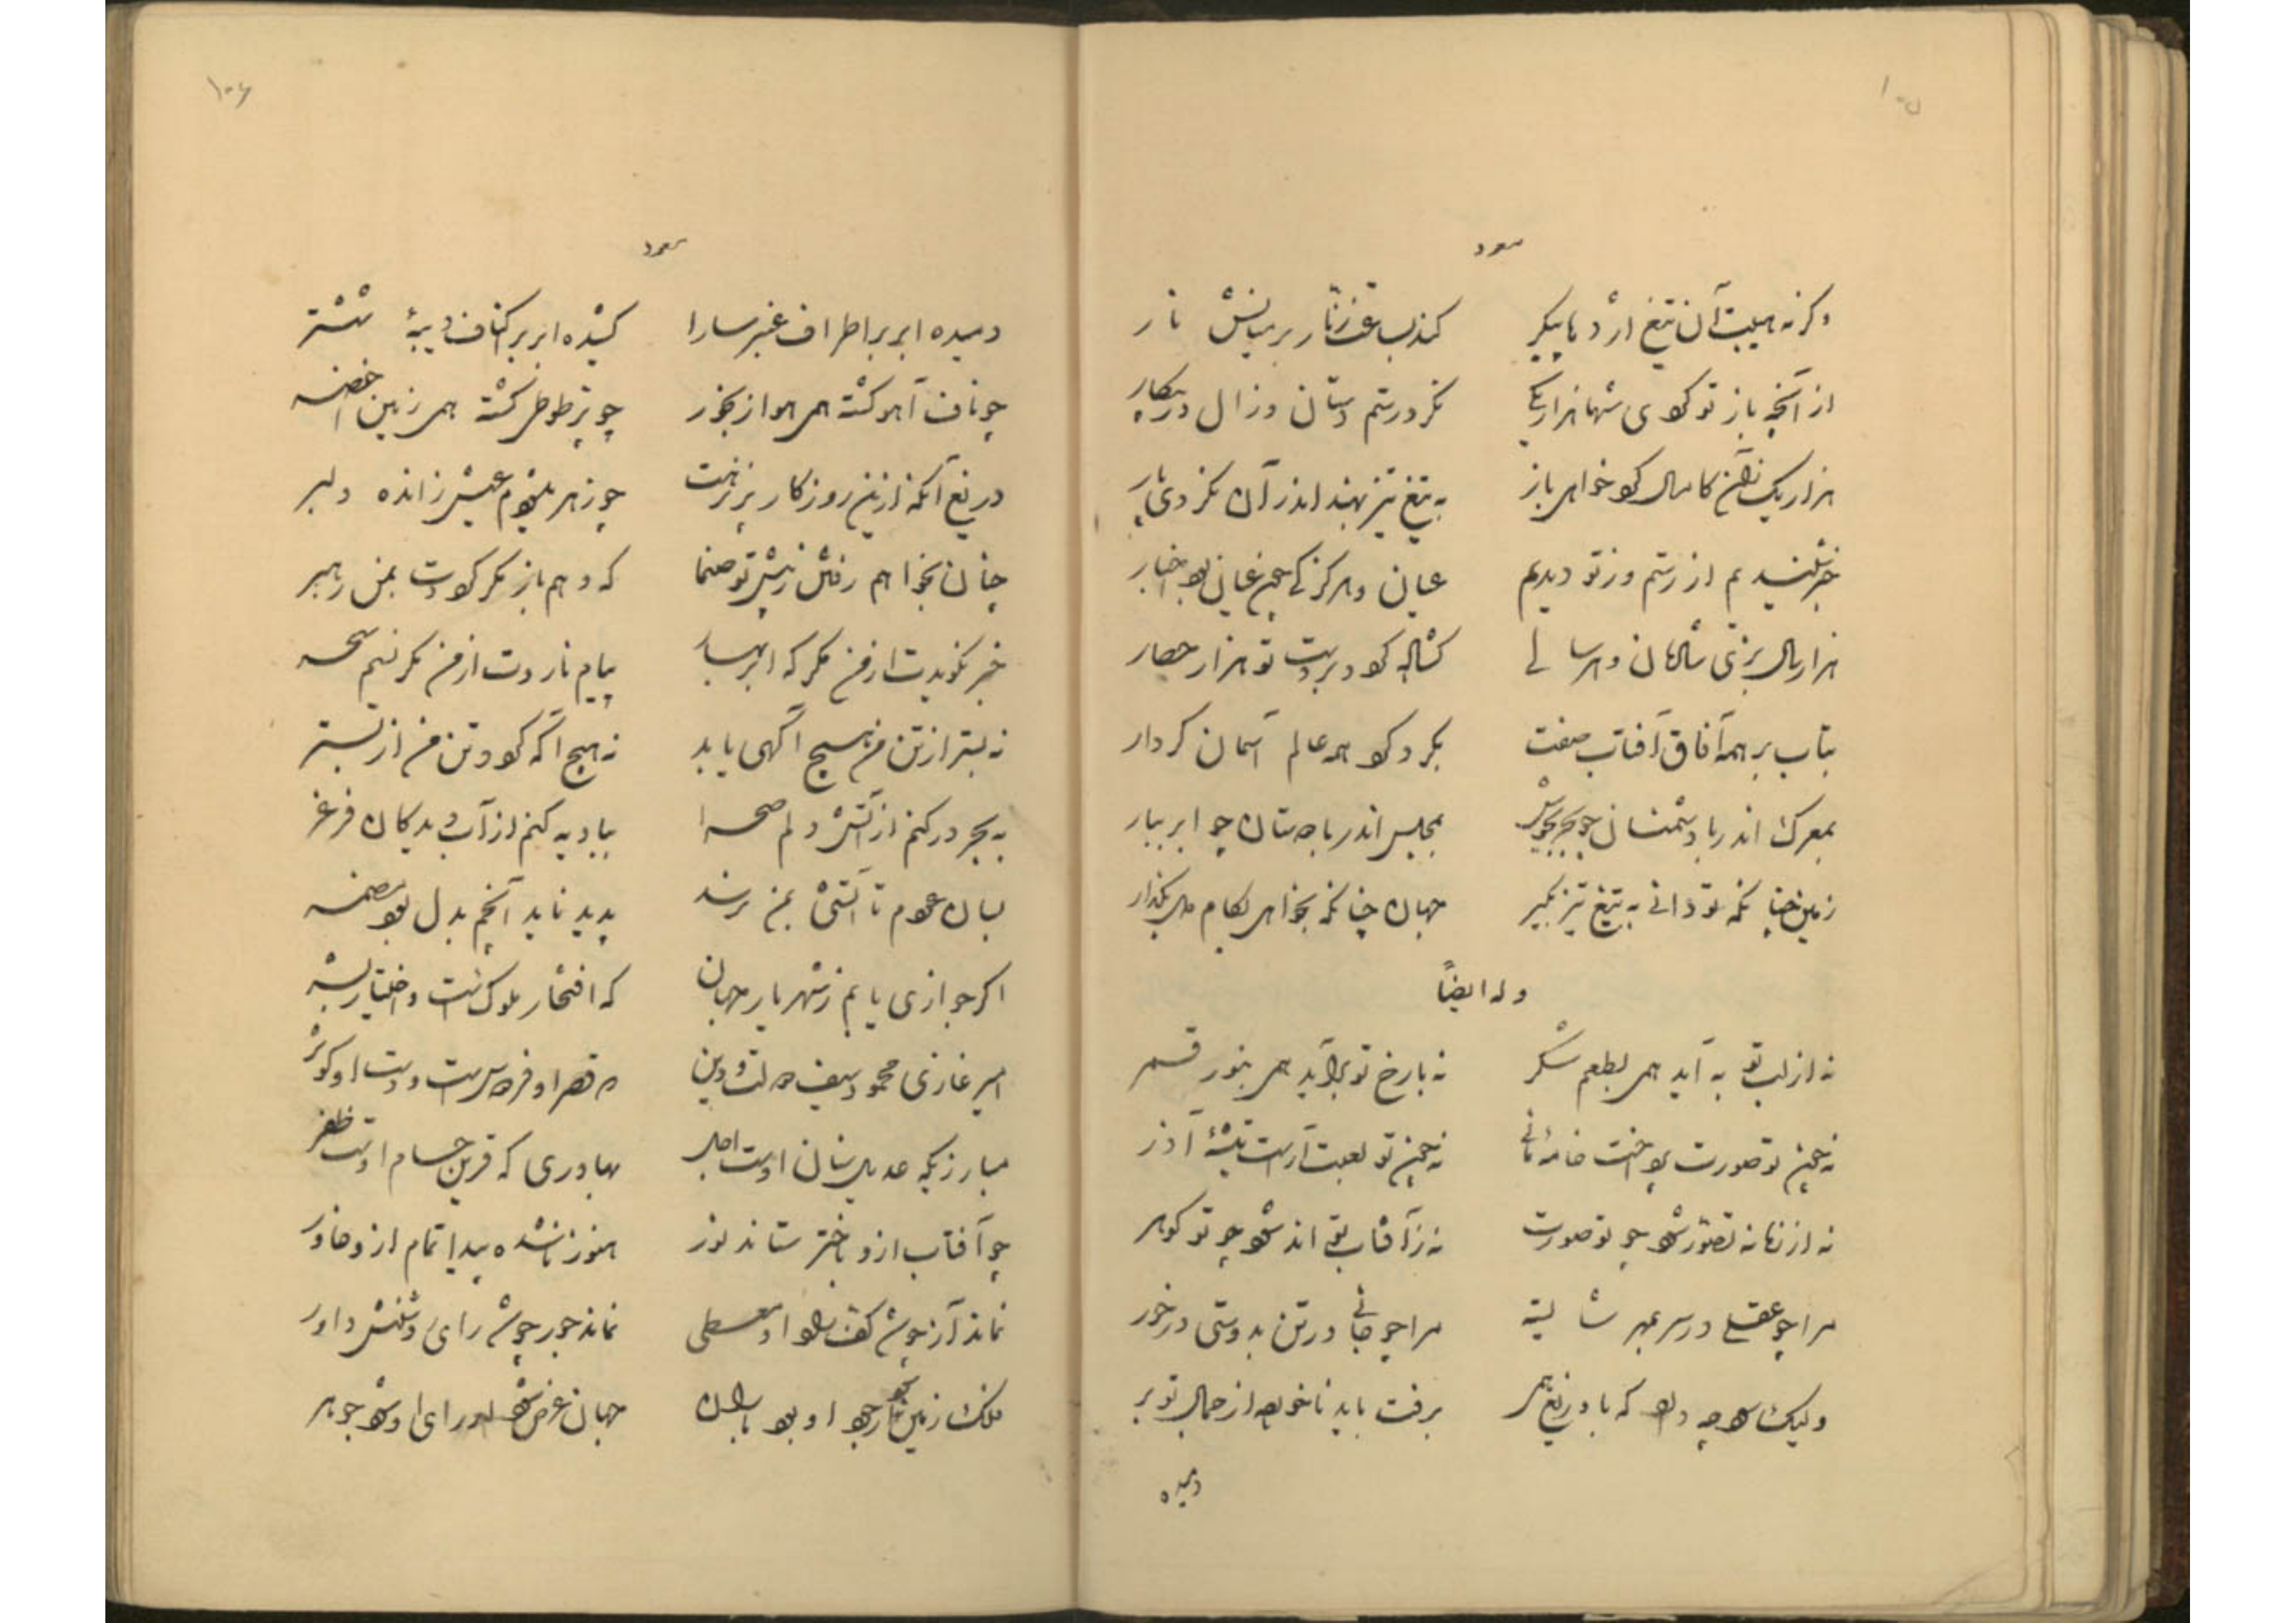 ۱۰۵
مسعود
وگرنه هیبت آن تیغ اژدها پیکر کمند ساعت زنار بر میانش نار
از آنچه باز تو کردی شها هزار یکی نکرد رستم دستان و زال در پیکار
هزار یک آن کامسال کرد خواهی باز به تیغ تیز بهند اندر آن نکردی پار
خبر شنیدیم از رستم و ز تو دیدیم عیان و هرگز کی چون عیان بود اخبار
هزار سال بزی شاهمان و هر سالی گشاده گردد بر دست تو هزار حصار
بتاب بر همه آفاق آفتاب صفت بگرد گرد همه عالم آسمان کردار
بمعرک اندر با دشمنان چو بحر بجوش بمجلس اندر با دوستان چو ابر ببار
زمین چنانکه تو دانی به تیغ تیز بگیر جهان چنانکه بخواهی بکام دل بگذار
وله ایضاً
نه از لب تو به آید همی بطعم شکر نه با رخ تو برآید همی بنور قمر
نه چون تو صورت پرداخت خامهٔ مانی نه چون تو لعبت آراست تیشهٔ آذر
نه از زمانه تصور شود چو تو صورت نه ز آفتاب تواند شود چو تو گوهر
مرا چو عقلی در سر بمهر شایسته مرا چو جانی در تن بدوستی در خور
ولیک چه دارد که با دریغ همی برفت باید ناخورده از جمال تو بر
دمیده
۱۰۶
مسعود
دمیده ابر بر اطراف عنبر سارا کشیده ابر بر اکناف دیبهٔ ششتر
چو ناف آهو گشته همی هوا ز بخور چو پر طوطی گشته همی زمین اخضر
دریغ آنکه ازین روزگار پر نزهت چو زهر بیتوام عیش ز انده دلبر
چنان بخواهم رفتن ز پیش تو صنما که وهم باز مگر گرددت بمن رهبر
خبر نگویدت از من مگر که ابر بهار پیام ناردت از من مگر نسیم سحر
نه بستر از تن من هیچ آگهی یابد نه هیچ آگه گردد تن من از بستر
به بحر در کنم از آتش دلم صحرا ببادیه کنم از آب دیدگان فرغر
بسان عودم تا آتشی بمن نرسد پدید ناید آنچم بدل بود مضمر
اگر جوازی یابم ز شهریار جهان که افتخار ملوکست و اختیار بشر
امیر غازی محمود سیف دولت و دین که قصر او فردوس است و دست او کوثر
مبارزیکه عدیل سنان اوست اجل بهادری که قرین حسام اوست ظفر
چو آفتاب ازو باختر ستاند نور هنوز ناشده پیدا تمام از خاور
نماند آز چو شد کف راد او معطی نماند جور چو شد رای روشنش داور
ملک زمین چو او بود باران جهان عرض شد و رای او شد جوهر